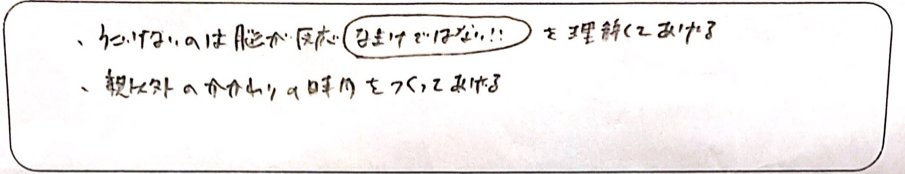 、動けないのは脳が反応 なまけではない!! を理解してあげる
、親以外のかかわりの時間をつくってあげる